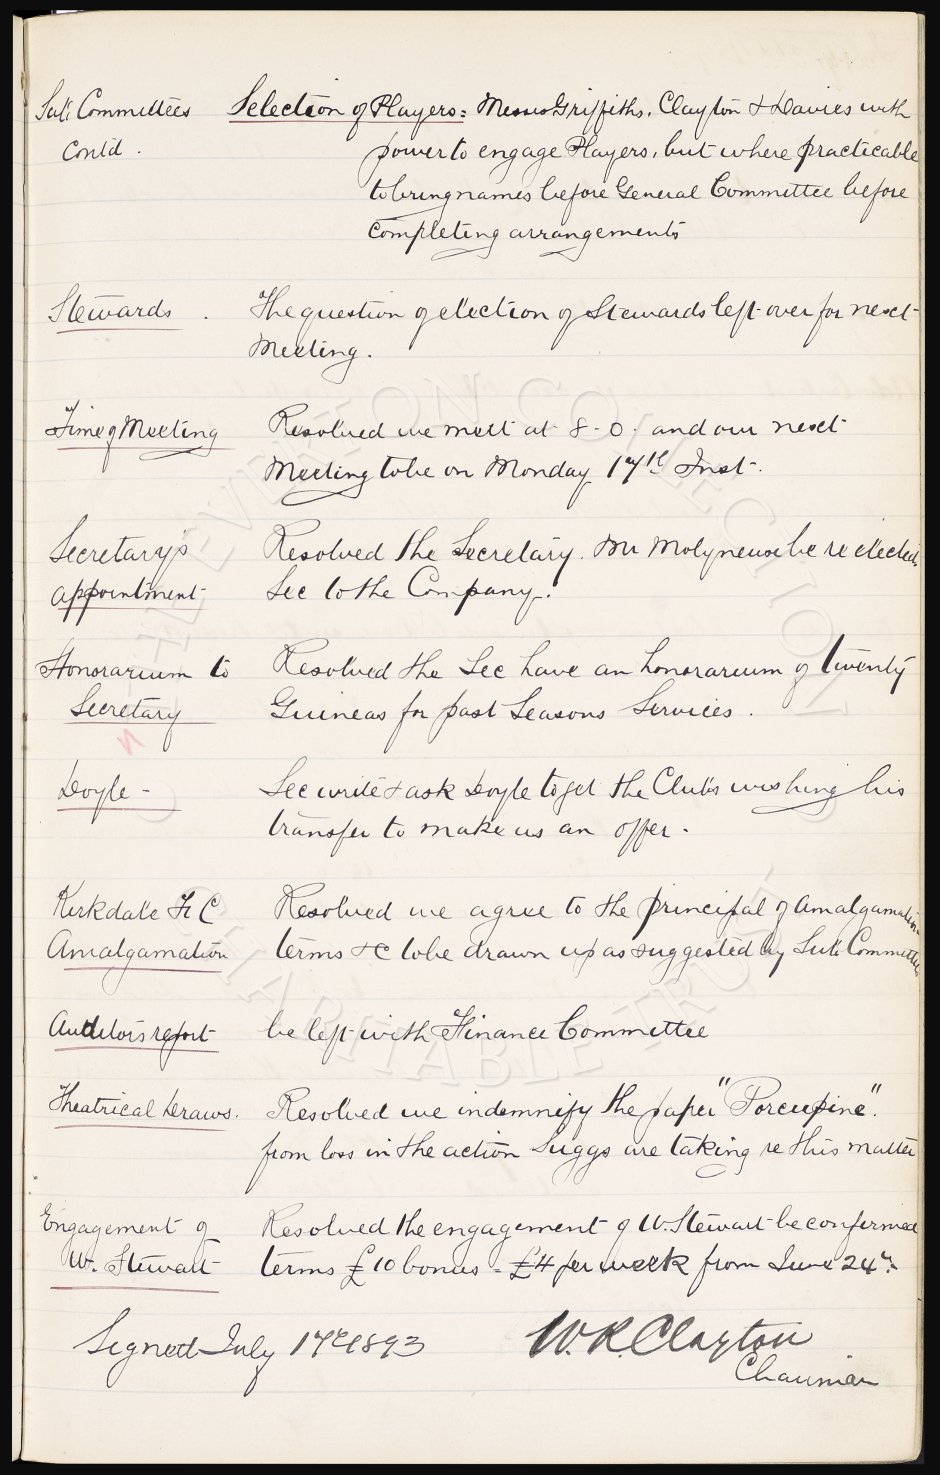 Sub Committees Selection of Players: Messrs Griffiths, Clayton & Davies with
Contd. power to engage Players, but where practicable
to bring names before General Committee before
completing arrangements
Stewards. The question of election of Stewards left over for next
Meeting.
Time of Meeting Resolved we meet at 8-0. and our next
Meeting to be on Monday 17th Inst.
Secretary's Resolved the Secretary. Mr Molyneux be re elected
appointment Sec to the Company.
Honorarium to Resolved the Sec have an honorarium of twenty
Secretary Guineas for past Seasons Services.
Doyle - Sec write & ask Doyle to get the Clubs wishing his
transfer to make us an offer.
Kirkdale F C Resolved we agree to the principal of amalgamation
Amalgamation terms &c to be drawn up as suggested by Sub Committee
Auditors report be left with Finance Committee
Theatrical Draws. Resolved we indemnify the paper "Porcupine".
from loss in the action Suggs are taking re this matter
Engagement of Resolved the engagement of W. Stewart be confirmed
W. Stewart terms £10 bonus - £4 per week from June 24th.
Signed July 17th 1893 W.R. Clayton
Chairman
THE EVERTON COLLECTION
CHARITABLE TRUST